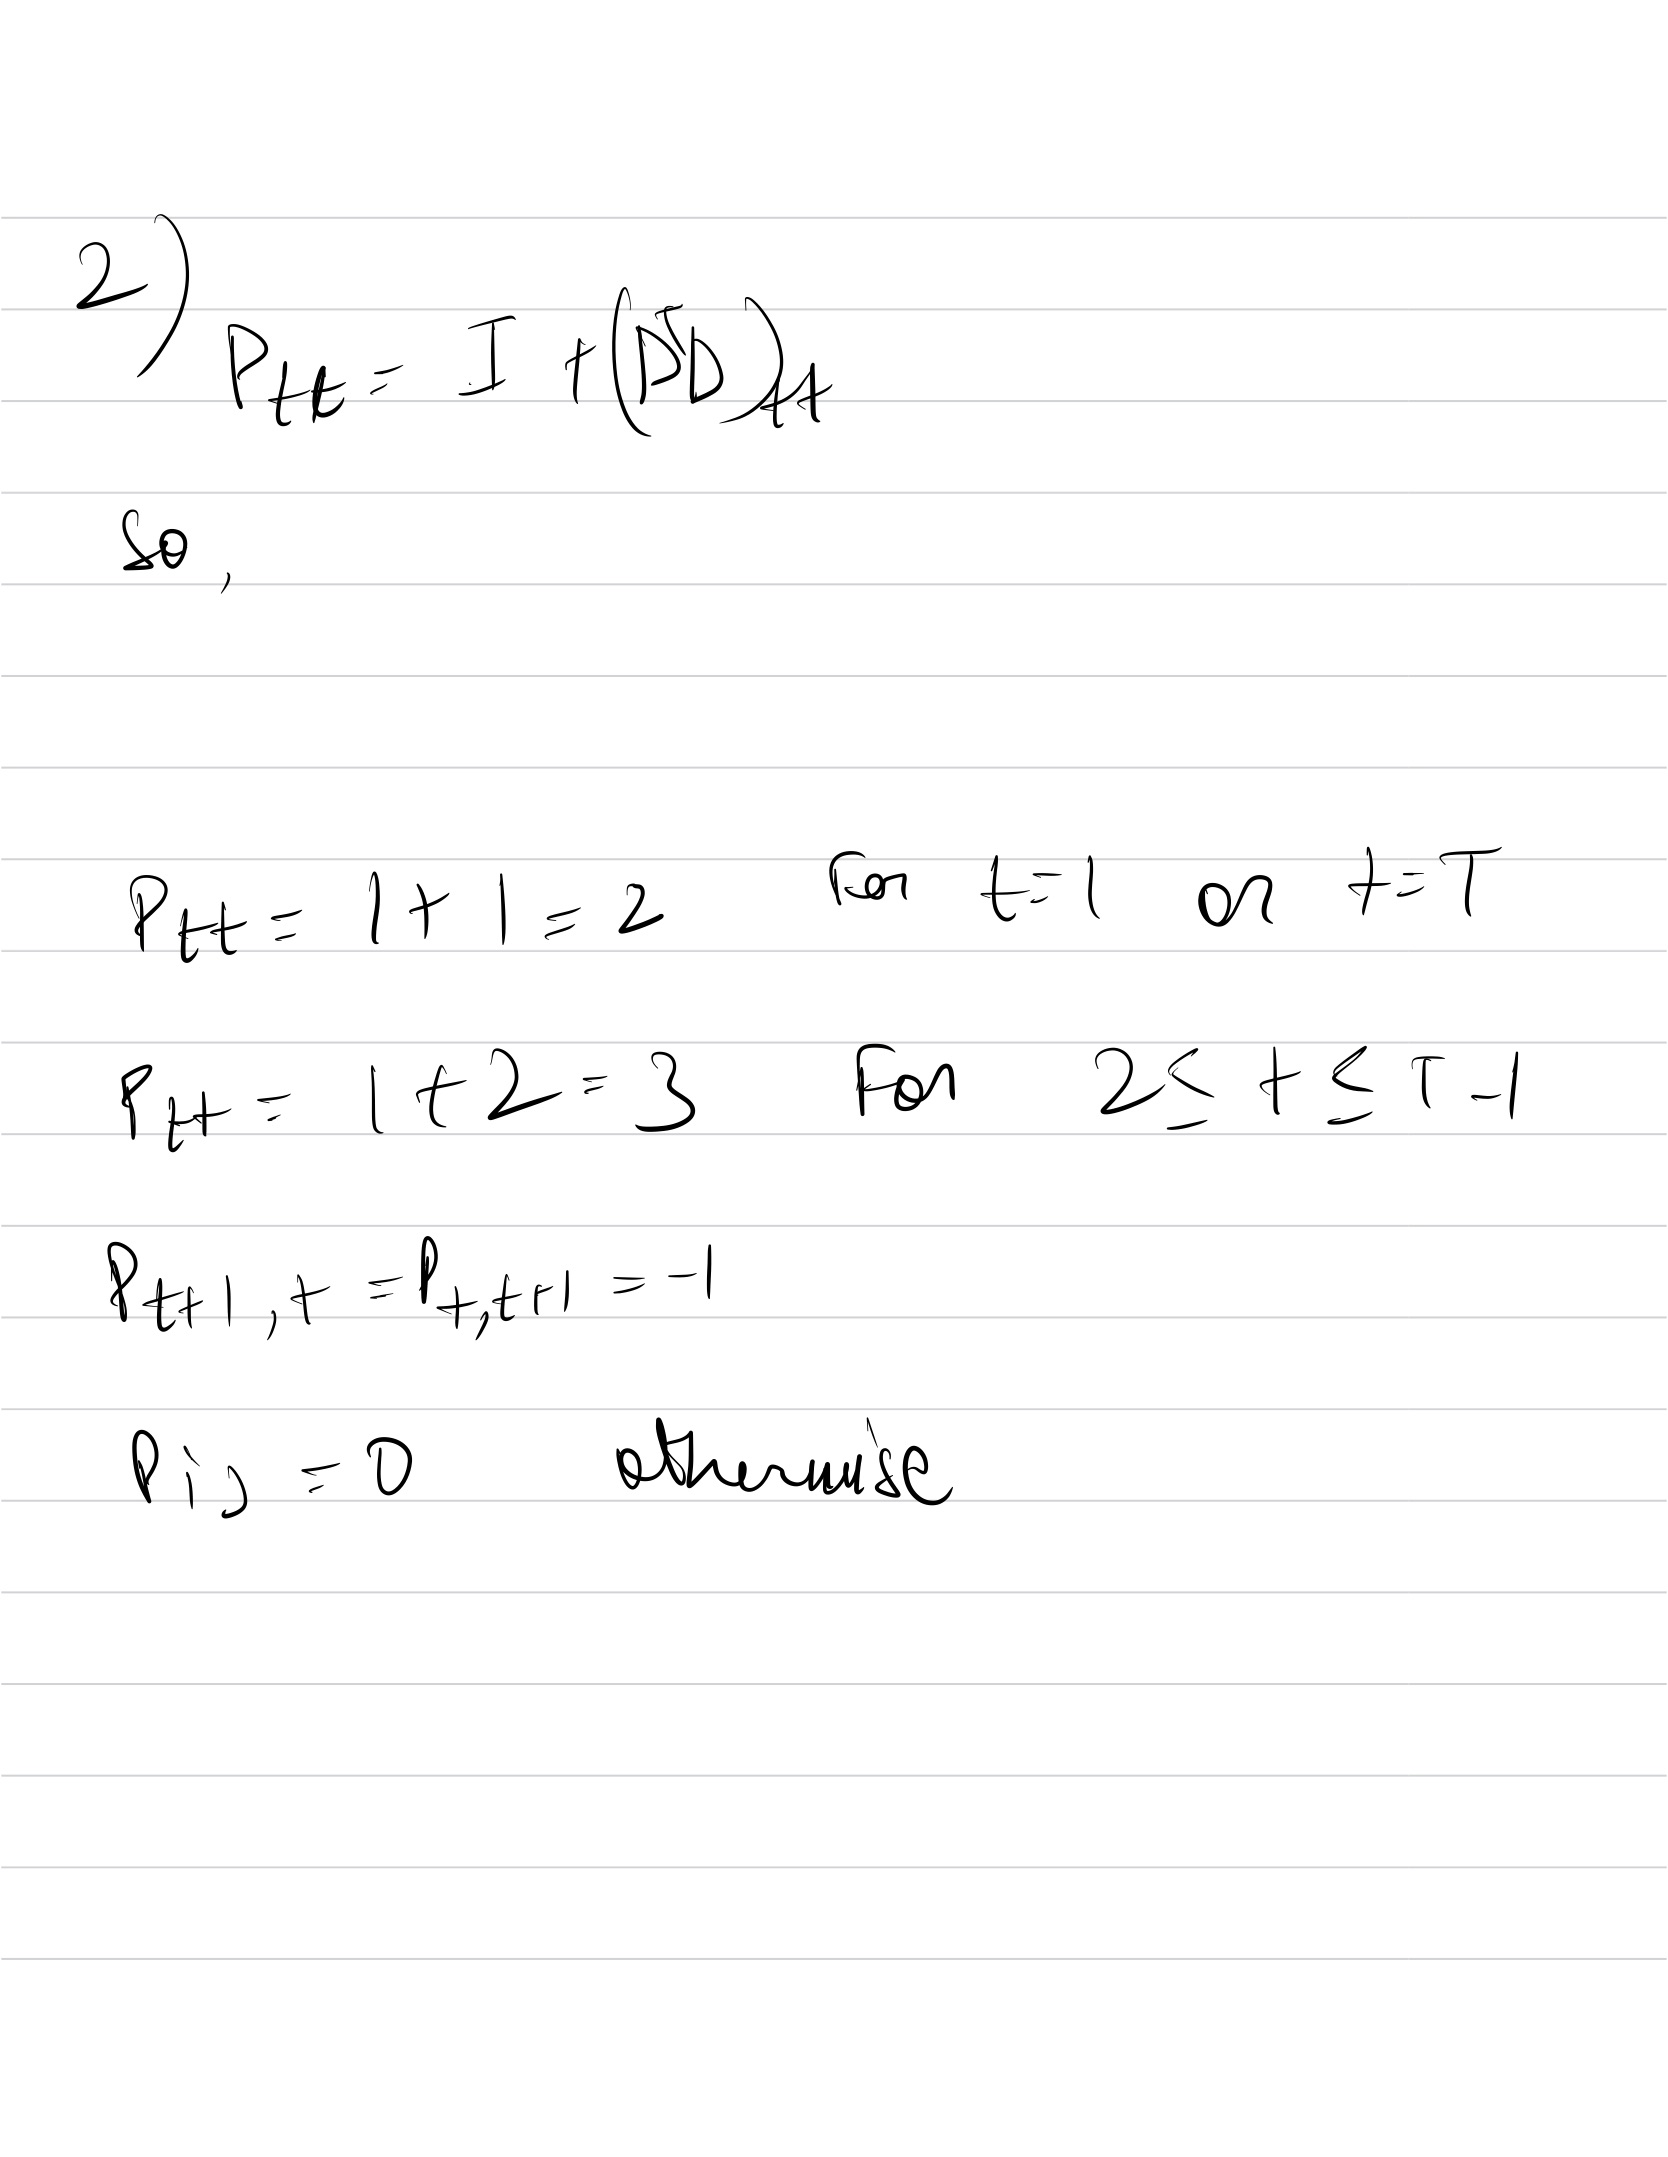 2)
P_tt = I + (DᵀD)_tt
So,
P_tt = 1 + 1 = 2 For t = 1 or t = T
P_tt = 1 + 2 = 3 For 2 ≤ t ≤ T - 1
P_t+1,t = P_t,t+1 = -1
P_ij = 0 otherwise